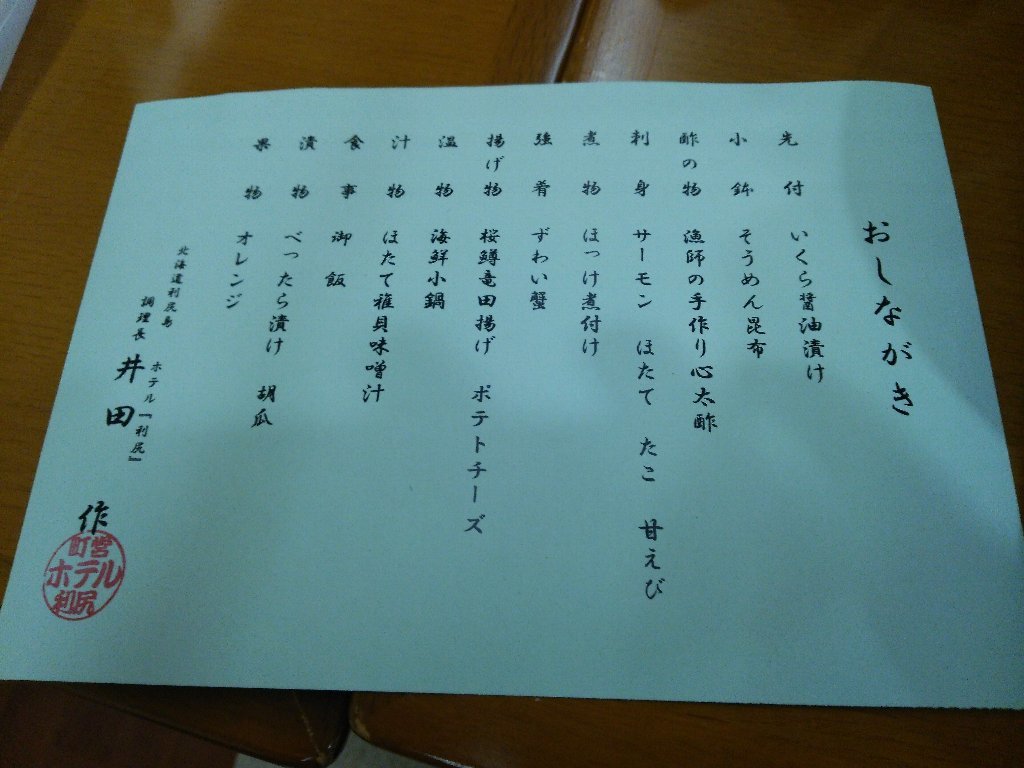 おしながき
先付 いくら醤油漬け
小鉢 そうめん昆布
酢の物 漁師の手作り心太酢
刺身 サーモン ほたて たこ 甘えび
煮物 ほっけ煮付け
強肴 ずわい蟹
揚げ物 桜鱒竜田揚げ ポテトチーズ
温物 海鮮小鍋
汁物 ほたて稚貝味噌汁
食事 御飯
漬物 べったら漬け 胡瓜
果物 オレンジ
北海道利尻島 ホテル『利尻』
調理長 井田 作
町営
ホテル
利尻